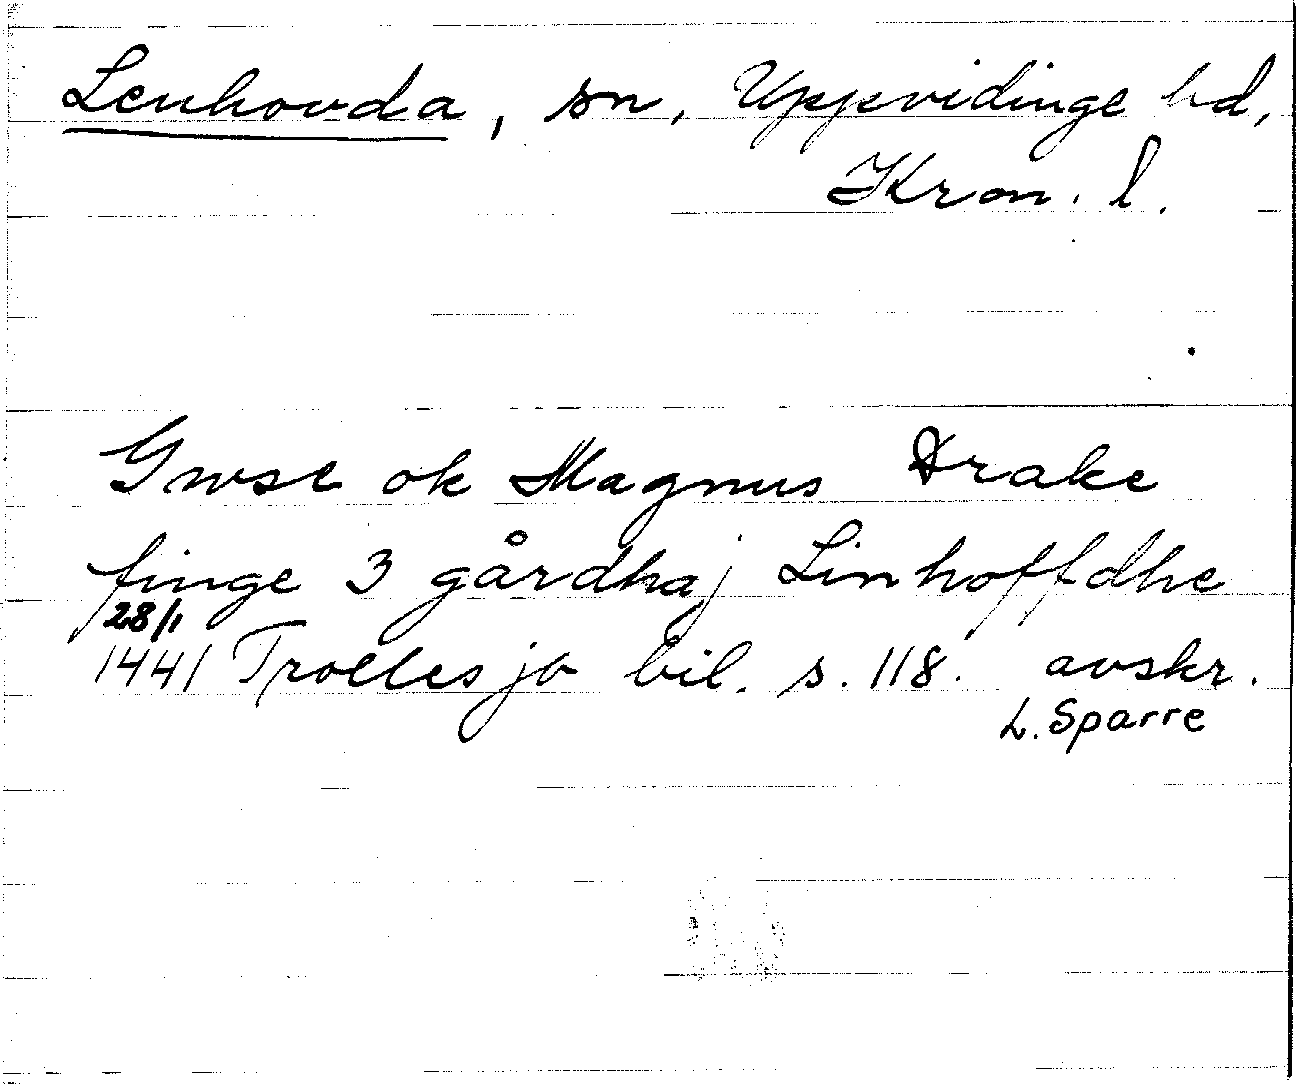 Lenhovda, sn, Uppvidinge hd,
Kron. l.
Gwse ok Magnus Drake
finge 3 gårdhaj Linhoffdhe
28/1
1441 Trolles jb bil. s. 118. avskr.
L. Sparre